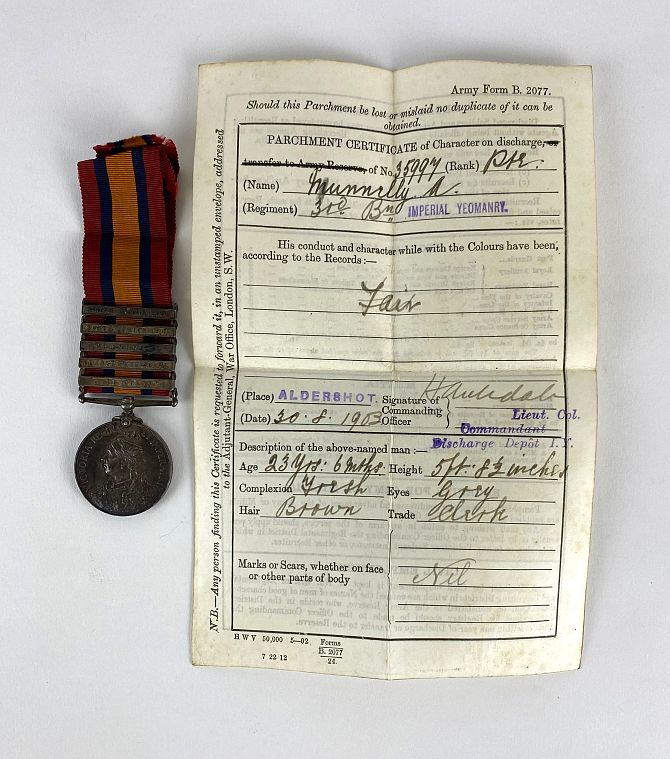 Army Form B. 2077.
Should this Parchment be lost or mislaid no duplicate of it can be
obtained.
PARCHMENT CERTIFICATE of Character on discharge, or
transfer to Army Reserve, of No. 35997 (Rank) Pte.
(Name) Munnelly A.
(Regiment) 3rd Bn IMPERIAL YEOMANRY.
His conduct and character while with the Colours have been,
according to the Records:—
Fair
(Place) ALDERSHOT. Signature of
Commanding
Officer
Lieut. Col.
Commandant
Discharge Depot I.Y.
(Date) 30.8.1903
Description of the above-named man:—
Age 23 Yrs. 6 mths. Height 5ft. 8½ inches
Complexion Fresh Eyes Grey
Hair Brown Trade Clerk
Marks or Scars, whether on face
or other parts of body
Nil
N.B.—Any person finding this Certificate is requested to forward it, in an unstamped envelope, addressed
to the Adjutant-General, War Office, London, S.W.
H W V 50,000 5—02
Forms
B. 2077
24.
7 22 12
VICTORIA